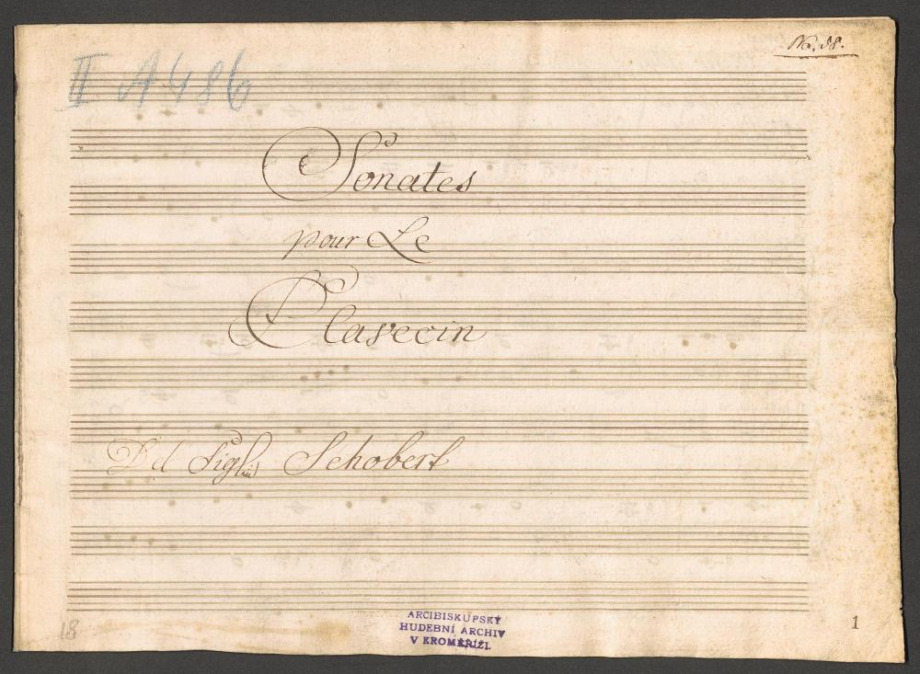 No. 58.
II A 486
Sonates
pour Le
Clavecin
Schobert
18
ARCIBISKUPSKÝ
HUDEBNÍ ARCHIV
V KROMĚŘÍŽI.
1